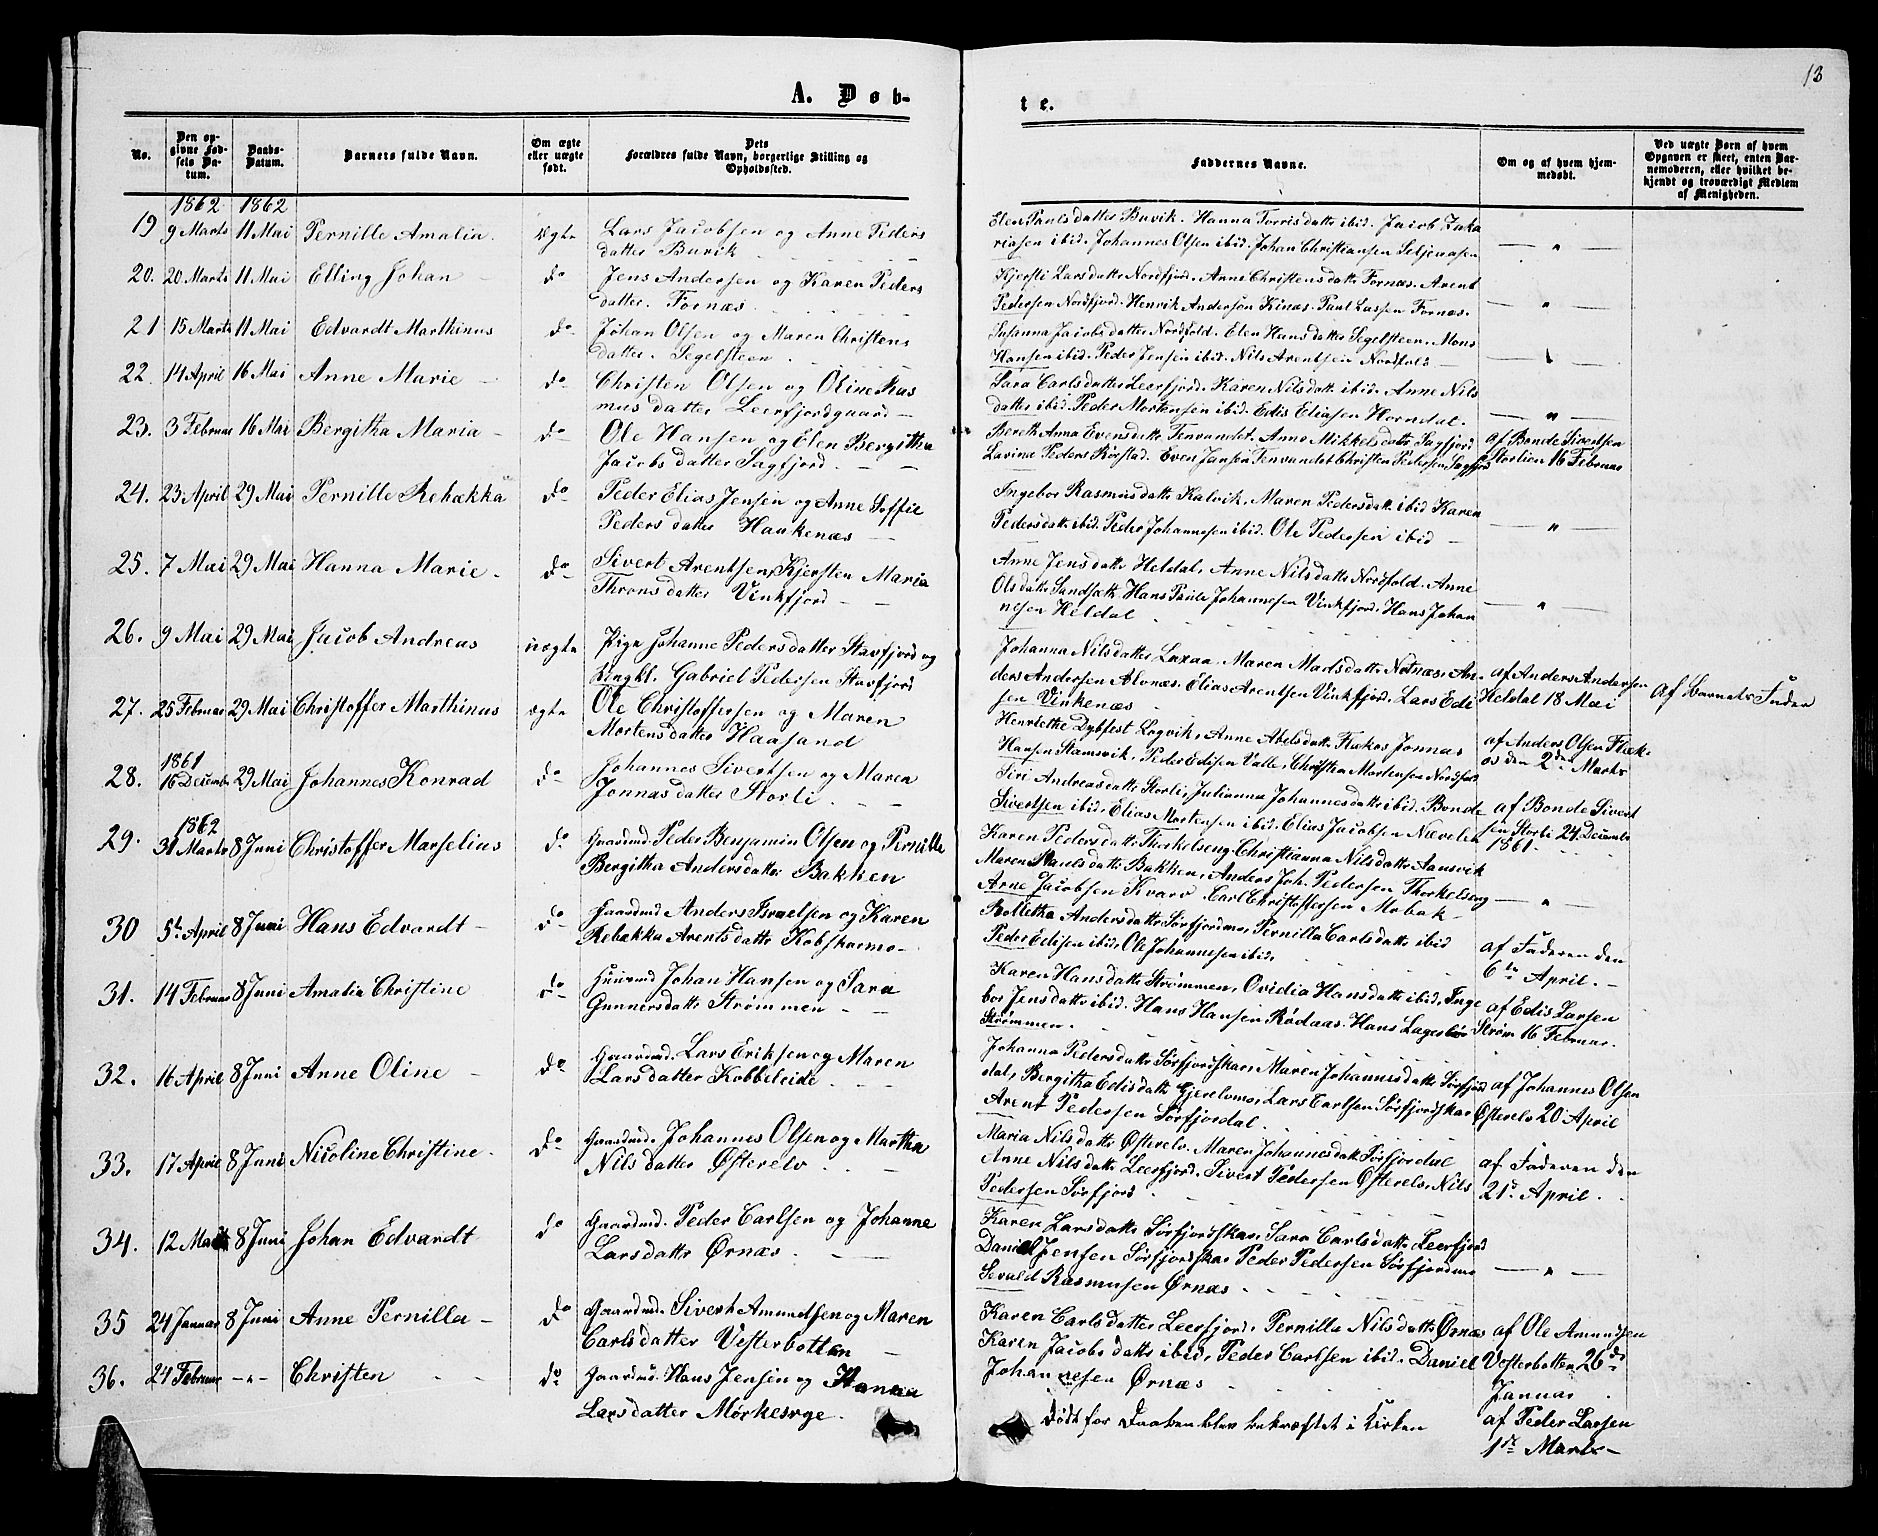 13
A. Døb-
te.
No.
Den op-
givne Fød-
sels Da-
tum.
Daabs-
Datum.
Barnets fulde Navn.
Om ægte
eller uægte
født.
Dets
Forældres fulde Navn, borgerlige Stilling og
Opholdssted.
Faddernes Navne.
Om og af hvem hjem-
medøbt.
Ved uægte Børn af hvem
Opgaven er skeet, enten Bar-
nemoderen, eller hvilket be-
kjendt og troværdigt Medlem
af Menigheden.
1862 1862
19 9 Marts 11 Mai Pernille Amalia. ægte Lars Jacobsen og Anne Peders
datter Buvik
Elen Paulsdatter Buvik. Hanna Torrisdatte ibid. Jacob Zaka
riasen ibid. Johannes Olsen ibid. Johan Christiansen — " —
20. 20 Marts 11 Mai Elling Johan — do Jens Andersen og Karen Peders
datter. Fornæs.
Kjersti Larsdatte Nordfjord. Anne Christensdatte Fornæs. Arent
Pedersen Nordfjord. Henrik Andersøn Kinæs. Paul Larsen Fornæs. — " —
21 15 Marts 11 Mai Edvardt Marthinus do Johan Olsen og Maren Christens
datter. Segelsteen.
Susanna Jacobsdatter Nordfold. Elen Hansdatter Segelsteen. Mons
Hansen ibid. Peder Jensen ibid. Nils Arentsen Nordfold —
22. 14 April 16 Mai Anne Marie — do Christen Olsen og Oline Ras
musdatter Leerfjordgaard —
Sara Carlsdatter Leerfjord. Karen Nilsdatte ibid. Anne Nils
datter ibid. Peder Mortensen ibid. Edis Eliasen Horndal. — " —
23. 3 Februar 16 Mai Bergitha Maria — do Ole Hansen og Elen Bergitha
Jacobsdatter Sagfjord. —
Bereth Anna Evensdatte Tenvandet. Anne Mikkelsdatte Sagfjord
Lavina Peders Rørstad. Even Jansen Tenvandet Christen Pedersen Sagfjord
af Bonde Sivertsen
Storlien 16 Februar
24. 23 April 29 Mai Pernille Rebækka do Peder Elias Jensen og Anne Soffie
Pedersdatter Haukenæs —
Ingebor Rasmusdatte Kalvik. Maren Pedersdatte ibid Karen
Pedersdatte ibid. Peder Johannesen ibid. Ole Pedersen ibid — — " —
25. 7 Mai 29 Mai Hanna Marie. do Sivert Arentsen, Kjersten Maria
Thronsdatter Vinkfjord —
Anne Jensdatte Heldal, Anne Nilsdatte Nordfold. Anne
Olsdatte Hans Paule Johannesen Vinkfjord. Hans Johan
nesen Heldal. — " —
26. 9 Mai 29 Mai Jacob Andreas uægte Pige Johanne Pedersdatter Stavfjord og
Ungkl. Gabriel Pedersen Stavfjord
Johanna Nilsdatter Laxaa. Maren Madsdatte Notnæs. An-
ders Andersen Alvnæs. Elias Arentsen Vinkfjord. Lars Edi
sen Vinkenæs
af Anders Andersen
Heldal 18 Mai
af Barnets Fader
27. 25 Februar 29 Mai Christoffer Marthinus ægte Ole Christoffersen og Maren
Mortensdatter Haasand
Henriethe Dybfest Løgvik. Anne Abelsdatte Flækos Jonnas
Hansen Stamsvik. Peder Edisen Valle. Christen Mortensen Nordfold
af Anders Olsen Flæk-
os den 2den Marts
1861
28. 16 Decembr 29 Mai Johannes Konrad do Johannes Sivertsen og Maren
Jonnasdatter Storli.
Siri Andreasdatte Storli, Julianna Johannesdatte ibid. Bonde
Sivertsen ibid. Elias Mortensen ibid. Elias Jacobsen
af Bonde Sivert
sen Storli 24 Decembr
1861
1862
29. 31 Marts 8 Juni Christoffer Marselius do Gaardmd Peder Benjamin Olsen og Pernille
Bergitha Andersdatte Bakken
Karen Pedersdatte Thorkelseng. Christianna Nilsdatte Aansvik
Maren Paulsdatte Bakken, Anders Joh. Pedersen Thorkelseng
Arne Jacobsen Kvarv Carl Christoffersen Mobak — — " —
30 5te April 8 Juni Hans Edvardt — do Gaardmd Anders Israelsen og Karen
Rebækka Arentsdatte Kobskarmo —
Bolletha Andersdatte Sørfjordmo, Pernilla Carlsdatte ibid
Peder Edisen ibid. Ole Johannesen ibid.
af Faderen den
6te April. —
31. 14 Februar 8 Juni Amalia Christine do Huusmd Johan Hansen og Sara
Gunnersdatte Strømmen
Karen Hansdatte Strømmen, Ovidia Hansdatte ibid, Inge
bor Jensdatte ibid. Hans Hansen Rødaas. Hans
Strømmen.
af Edis Larsen
Strøm 16 Februar.
32. 16 April 8 Juni Anne Oline — do Gaardmd. Lars Eriksen og Maren
Larsdatter Kobbeleide
Johanna Pedersdatte Sørfjordskar, Maren Johannesdatte Sørfjord
dal, Bergitha Edisdatte Gjerelvmo, Lars Carlsen Sørfjordskar
Arent Pedersen Sørfjordal.
af Johannes Olsen
Østerelv 20 April
33. 17 April 8 Juni Nicoline Christine. do Gaardmd. Johannes Olsen og Martha
Nilsdatter Østerelv
Maria Nilsdatte Østerelv. Maren Johannesdatte Sørfjordal
Anne Nilsdatte Leerfjord. Sivert Pedersen Østerelv, Nils
Pedersen Sørfjord
af Faderen den
21de April.
34. 12 Marts 8 Juni Johan Edvardt do Gaardmd. Peder Carlsen og Johanne
Larsdatte Ørnæs.
Karen Larsdatte Sørfjordskar, Sara Carlsdatte Leerfjord
Daniel Jensen Sørfjordskar Peder Pedersen Sørfjordmo
Sevald Rasmusen Ørnæs — " —
35 24 Januar 8 Juni Anne Pernilla — do Gaardmd. Sivert Amundsen og Maren
Carlsdatter Vesterbotten —
Karen Carlsdatter Leerfjord, Pernilla Nilsdatte Ørnæs
Karen Jacobsdatte ibid, Peder Carlsen ibid. Daniel
Johannesen Ørnæs
af Ole Amundsen
Vesterbotten 26de
Januar
36. 24 Februar — " — Christen do Gaardmd. Hans Jensen og Hanna
Larsdatter Mørkesvge.
Død før Daaben blev bekræftet i Kirken
af Peder Larsen
1ste Marts —